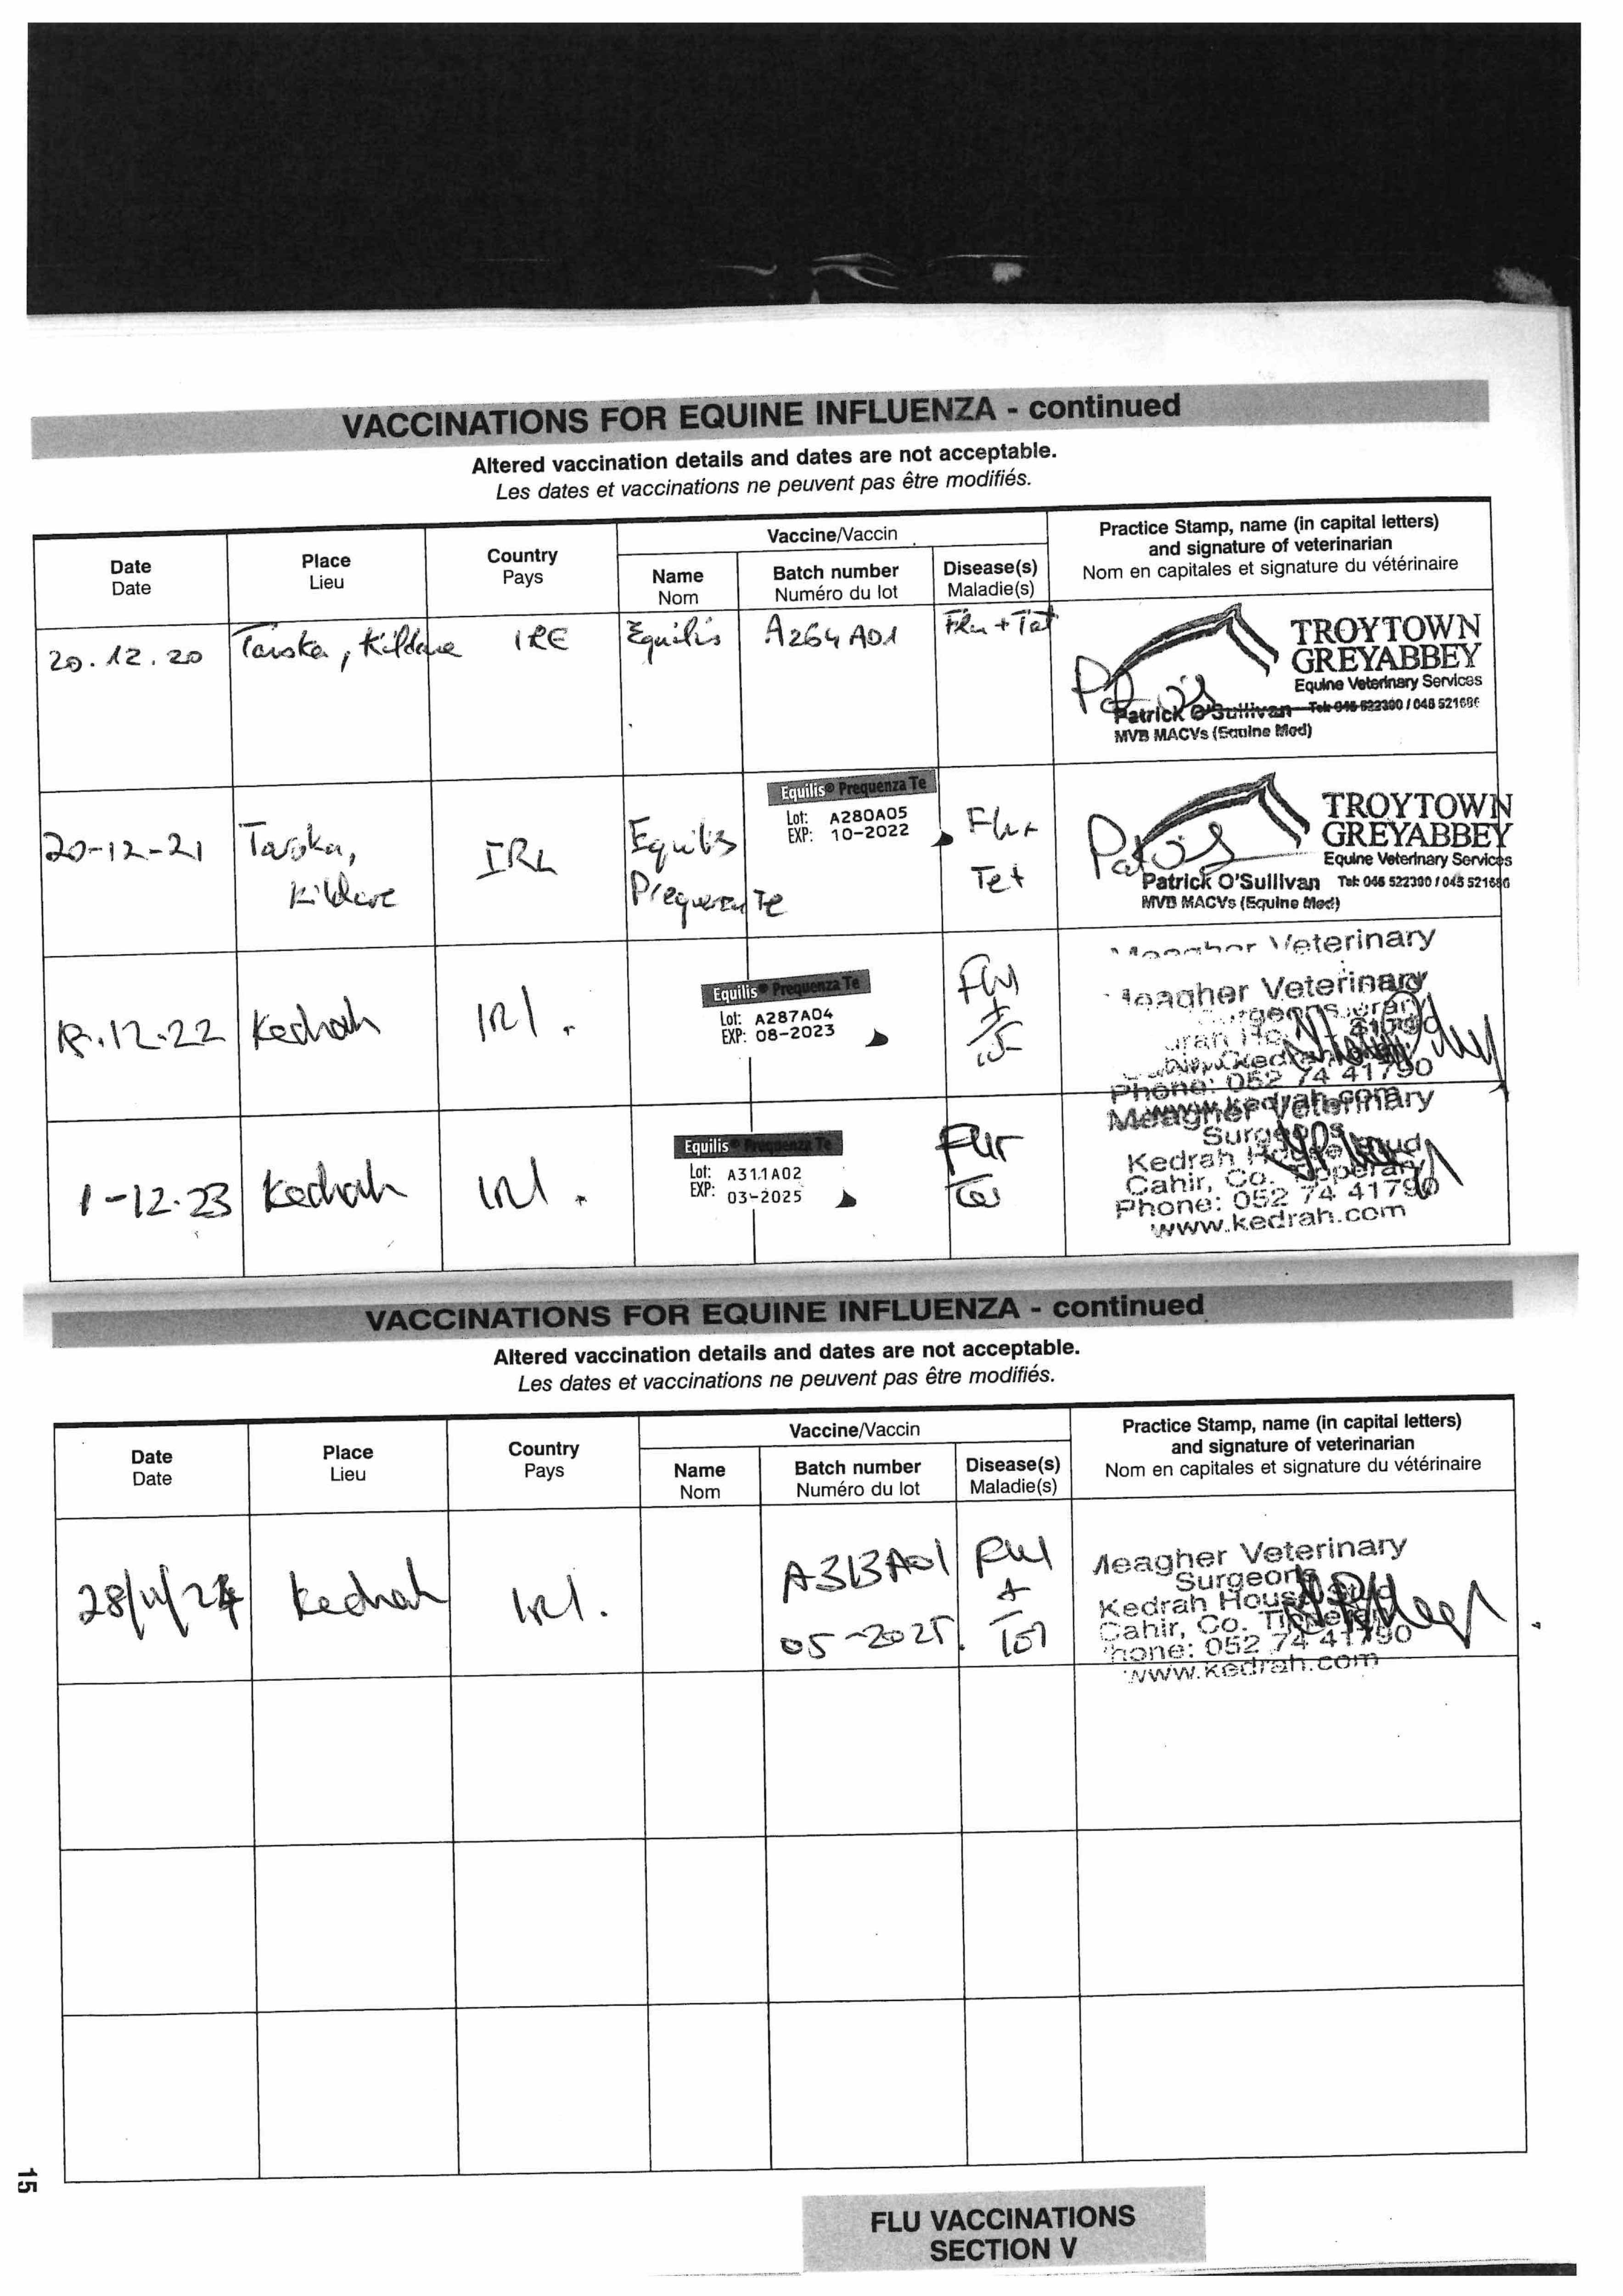 VACCINATIONS FOR EQUINE INFLUENZA - continued
Altered vaccination details and dates are not acceptable.
Les dates et vaccinations ne peuvent pas être modifiés.
Date
Date
Place
Lieu
Country
Pays
Vaccine/Vaccin
Name
Nom
Batch number
Numéro du lot
Disease(s)
Maladie(s)
Practice Stamp, name (in capital letters)
and signature of veterinarian
Nom en capitales et signature du vétérinaire
20.12.20
Kildare
IRE
Equilis
A264A01
Flu + Tet
TROYTOWN
GREYABBEY
Equine Veterinary Services
Patrick O'Sullivan
MVB MACVs (Equine Med)
20-12-21
Kildare
IRL
Equilis
Prequenza Te
Equilis® Prequenza Te
Lot: A280A05
EXP: 10-2022
Flu +
Tet
TROYTOWN
GREYABBEY
Equine Veterinary Services
Patrick O'Sullivan
MVB MACVs (Equine Med)
.12.22
Kedrah
IRL.
Equilis® Prequenza Te
Lot: A287A04
EXP: 08-2023
Flu
+
Meagher Veterinary
Phone: 052 74 41790
www.kedrah.com
1-12.23
Kedrah
IRL.
Equilis® Prequenza Te
Lot: A311A02
EXP: 03-2025
Flu +
Tet
Meagher Veterinary
Surgeons
Kedrah House Stud
Cahir, Co. Tipperary
Phone: 052 74 41790
www.kedrah.com
VACCINATIONS FOR EQUINE INFLUENZA - continued
Altered vaccination details and dates are not acceptable.
Les dates et vaccinations ne peuvent pas être modifiés.
Date
Date
Place
Lieu
Country
Pays
Vaccine/Vaccin
Name
Nom
Batch number
Numéro du lot
Disease(s)
Maladie(s)
Practice Stamp, name (in capital letters)
and signature of veterinarian
Nom en capitales et signature du vétérinaire
28/11/24
Kedrah
IRL.
A313A01
05-2025.
Flu
+
Tet
Meagher Veterinary
Surgeons
Kedrah House Stud
Cahir, Co. Tipperary
Phone: 052 74 41790
www.kedrah.com
15
FLU VACCINATIONS
SECTION V